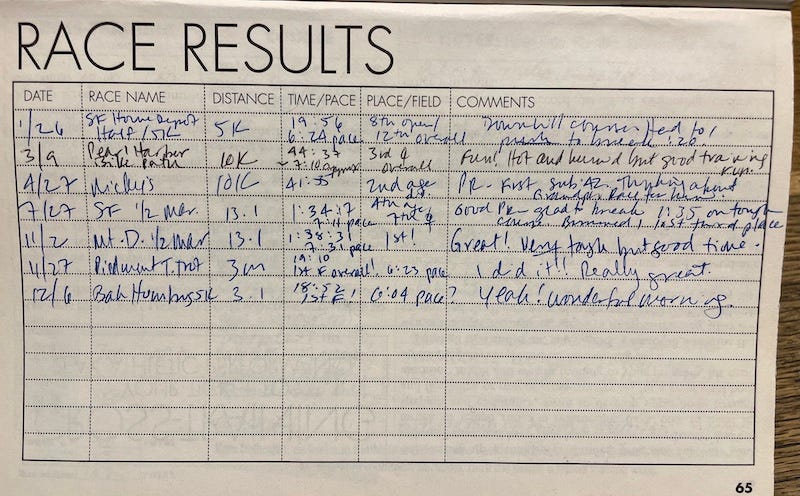 RACE RESULTS
DATE RACE NAME DISTANCE TIME/PACE PLACE/FIELD COMMENTS
1/26 SF Home Depot Half/5K 5K 19:56 6:24 pace 8th open/ 12th overall Downhill course, tied to, to break :20.
3/9 Pearl Harbor 10K 44:37 7:10 approx 3rd ♀ overall Fun! Hot and humid but good training run.
4/27 Mickey's 10K 41:55 2nd age PR. First sub 42. Thinking about Grandpa. Race for him.
7/27 SF 1/2 Mar. 13.1 1:34:17 pace 4th age 7th ♀ Good PR - glad to break 1:35 on tough course. Bummed I lost third place
11/2 Mt. D. 1/2 Mar 13.1 1:38:31 7:31 pace 1st! Great! Very tough but good time.
11/27 Piedmont T. Trot 3m 19:10 1st F overall! 6:23 pace I did it!! Really great.
12/6 Bah Humbug 5K 3.1 18:52 1st F! 6:04 pace? Yeah! Wonderful morning.
65